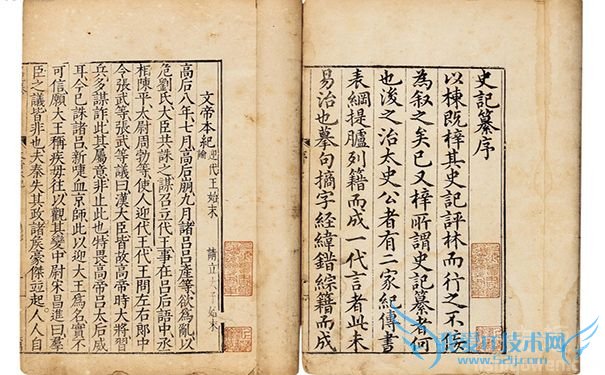 史記纂序
以棟既梓其史記評林而行之不佞
為叙之矣已又梓所謂史記纂者何
也後之治太史公者有二家紀傳書
表綱提臚列籍而成一代言者此未
易治也摹句摘字經緯錯綜籍而成
文帝本紀 迎代王始末 請立太子始末
高后八年七月高后崩九月諸呂呂產等欲為亂以
危劉氏大臣共誅之謀召立代王事在呂后語中丞
相陳平太尉周勃等使人迎代王代王問左右郎中
令張武等張武等議曰漢大臣皆故高帝時大將習
兵多謀詐此其屬意非止此也特畏高帝呂太后威
耳今已誅諸呂新啑血京師此以迎大王為名實不
可信願大王稱疾毋往以觀其變中尉宋昌進曰羣
臣之議皆非也夫秦失其政諸侯豪傑竝起人人自
我爱IT技术网
www.52ij.com